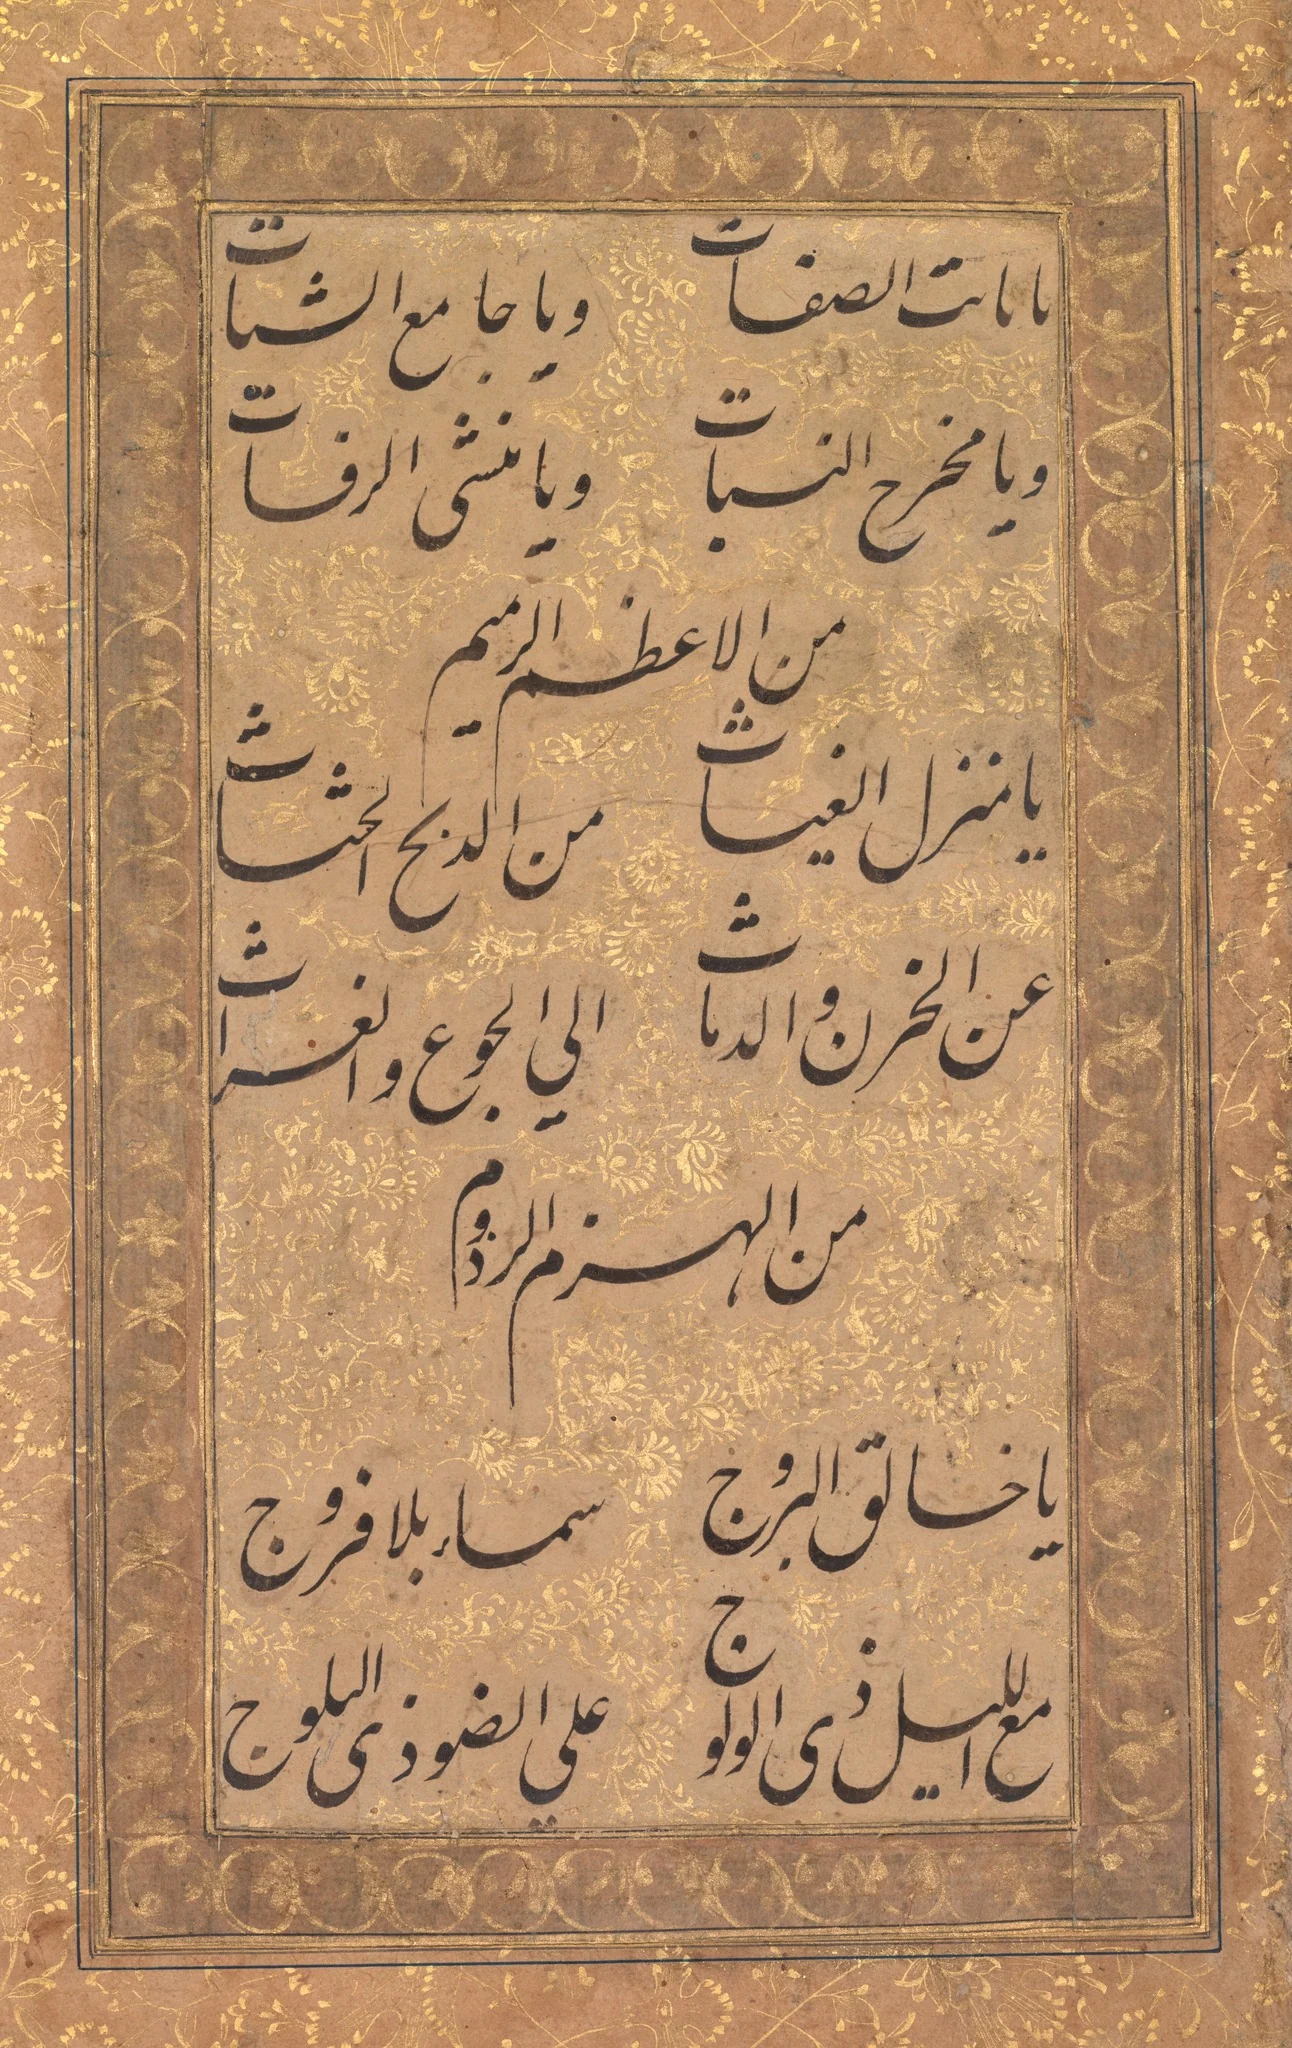 یا ثابت الصفات ویا جامع الشتات
ویا مخرج النبات ویا منشی الرفات
من الاعظم الرمیم
یا منزل الغیاث من الدلج الحثاث
عن الحزن والدماث الی الجوع والغراث
من الهزم الرذوم
یا خالق البروج سماء بلا فروج
مع اللیل ذی الولوج علی الضوء ذی البلوج